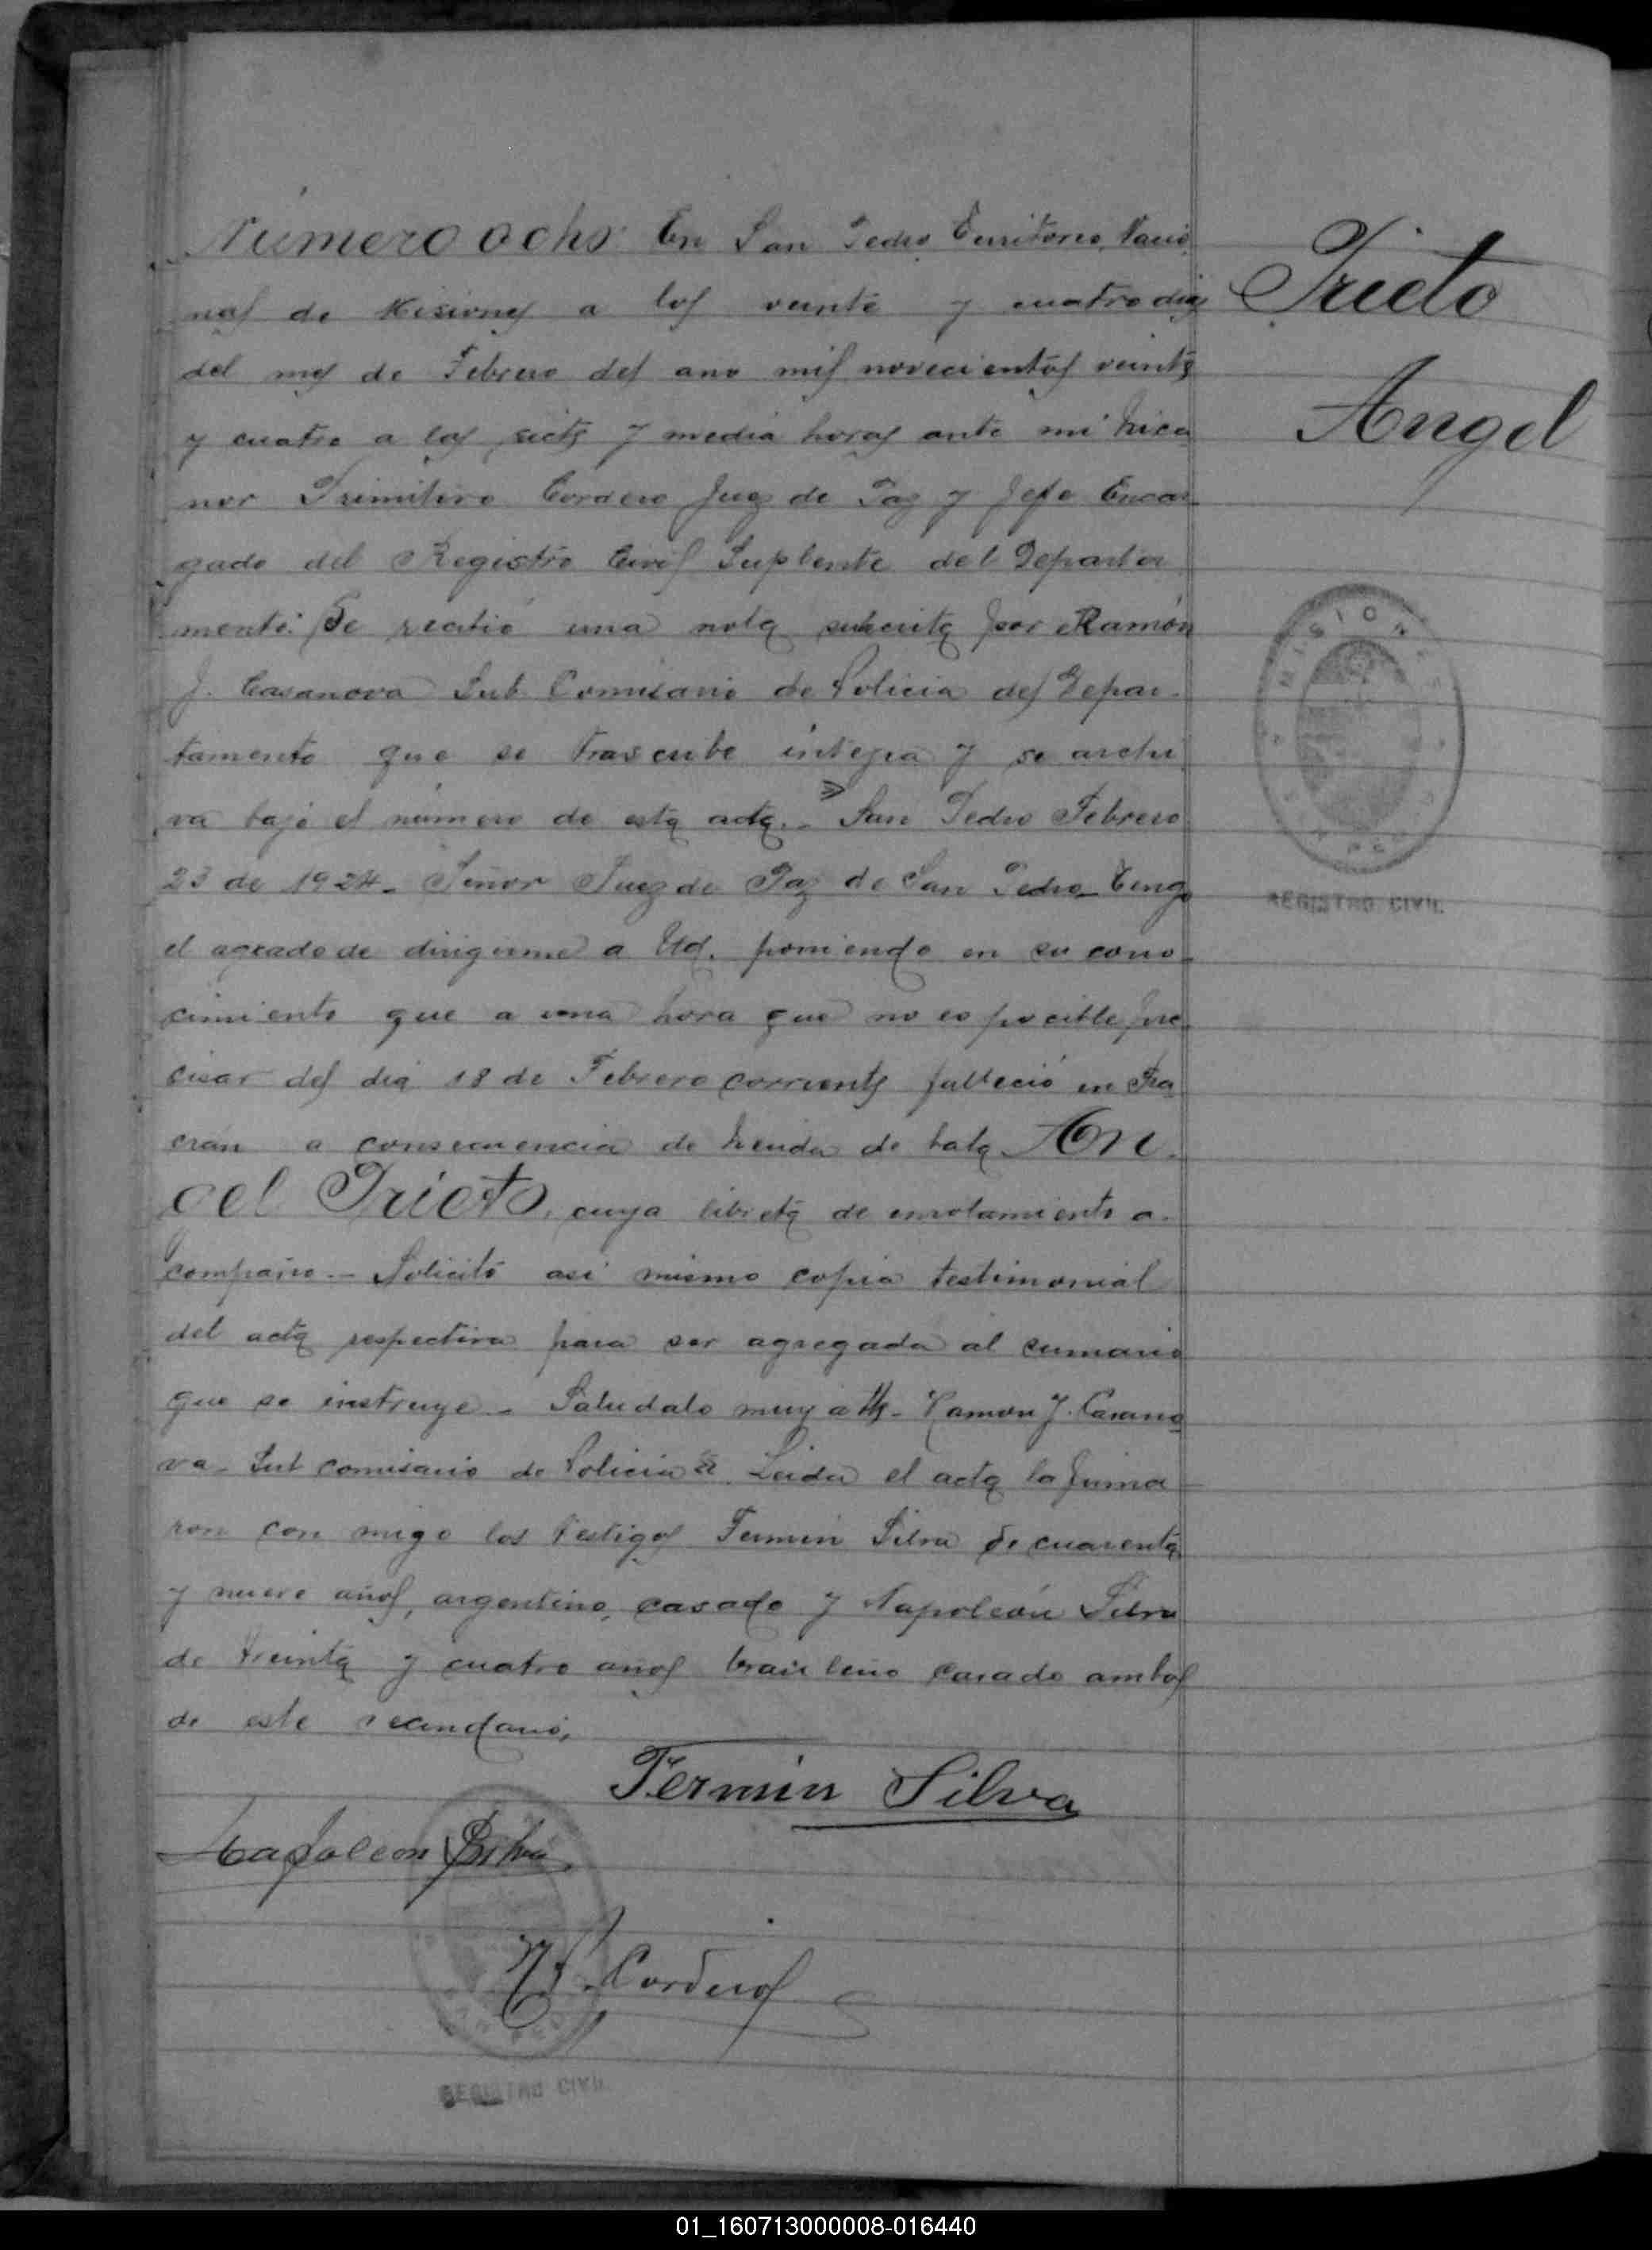 Número ocho En San Pedro Territorio Nacio
nal de Misiones a los veinte y cuatro dias
del mes de Febrero del ano mil novecientos veinte
y cuatro a las siete y media horas ante mi Nica
nor Primitivo Cordero Juez de Paz y Jefe Encar-
gado del Registro Civil Suplente del Departa
mento: Se recibió una nota suscrita por Ramón
J. Casanova Sub Comisario de Policia del Depar-
tamento que se trascribe integra y se archi
va bajo el número de esta acta.- San Pedro Febrero
23 de 1924- Señor Juez de Paz de San Pedro- Tengo
el agrado de dirigirme a Ud. poniendo en su cono-
cimiento que a una hora que no es pocible pre-
cisar del dia 18 de Febrero corriente falleció en Fra
cran a consecuencia de herida de bala An-
gel Prieto, cuya libreta de enrolamiento a-
compaño.- Solicito asi mismo copia testimonial
del acta respectiva para ser agregada al sumario
que se instruye- Saludalo muy atte- Ramon J. Casano
va- Sub comisario de Policia Leida el acta la firma
ron con migo los testigos Fermin Silva de cuarenta
y nueve años, argentino, casado y Napoleón Silva
de treinta y cuatro años brasileño casado ambos
de este vecindario,
Fermin Silva
Napoleon Silva
N P. Cordero
Prieto
Angel
MISIONES
REGISTRO CIVIL
REGISTRO CIVIL
01_160713000008-016440